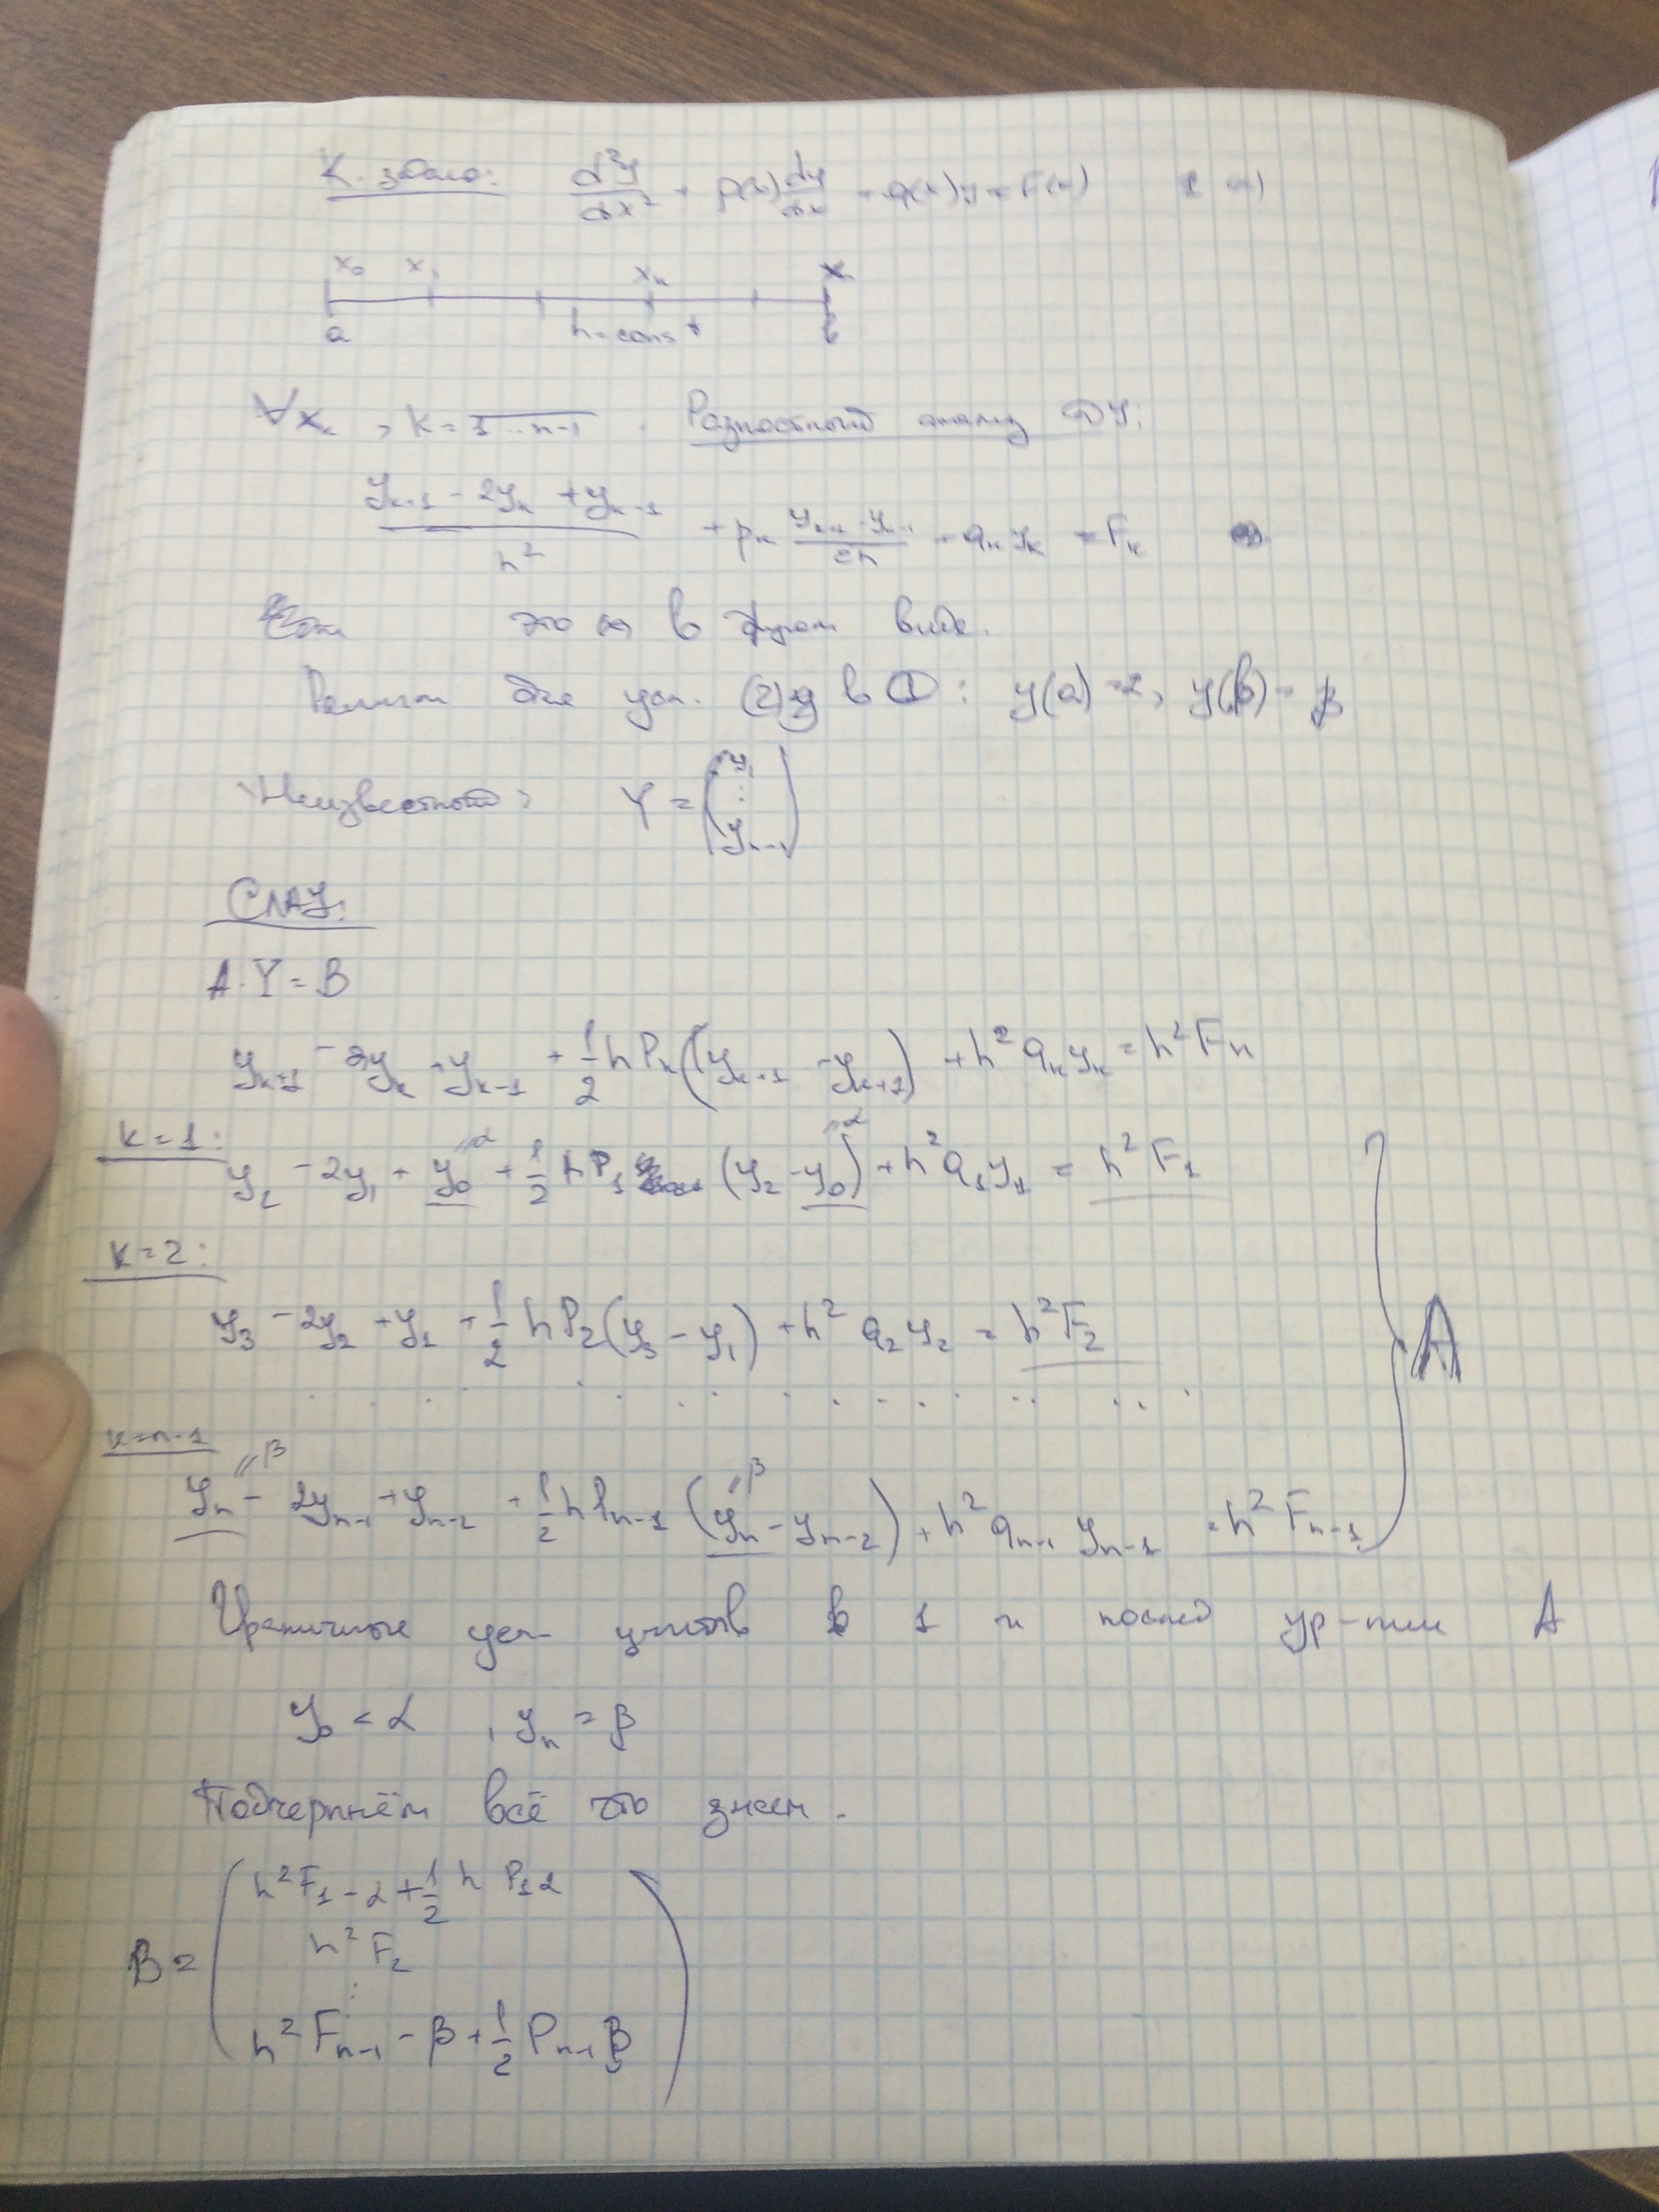 d²y/dx² + p(x) dy/dx + q(x)y = F(x)
x₀ x₁ xₖ x
a h=const b
∀xₖ, k = 1...n-1. Разностный аналог ДУ:
(yₖ₊₁ - 2yₖ + yₖ₋₁)/h² + pₖ (yₖ₊₁ - yₖ₋₁)/2h + qₖyₖ = Fₖ
это в другом виде.
(2) в ①: y(a) = α, y(b) = β
Неизвестные: Y = (y₁ ⋮ yₙ₋₁)
СЛАУ:
A·Y = B
yₖ₊₁ - 2yₖ + yₖ₋₁ + 1/2 h Pₖ(yₖ₊₁ - yₖ₊₁) + h² qₖyₖ = h² Fₖ
k = 1:
y₂ - 2y₁ + y₀ + 1/2 h P₁ (y₂ - y₀) + h² q₁y₁ = h² F₁
"α "α
k = 2:
y₃ - 2y₂ + y₁ + 1/2 h P₂(y₃ - y₁) + h² q₂y₂ = h² F₂
. . . . . . . . . . . .
A
k=n-1
yₙ - 2yₙ₋₁ + yₙ₋₂ + 1/2 h Pₙ₋₁ (yₙ - yₙ₋₂) + h² qₙ₋₁ yₙ₋₁ = h² Fₙ₋₁
"β "β
Граничные усл. в 1 и послед ур-нии A
y₀ = α , yₙ = β
Подчеркнём всё что знаем.
B = (h² F₁ - α + 1/2 h P₁α
h² F₂
⋮
h² Fₙ₋₁ - β + 1/2 Pₙ₋₁β)